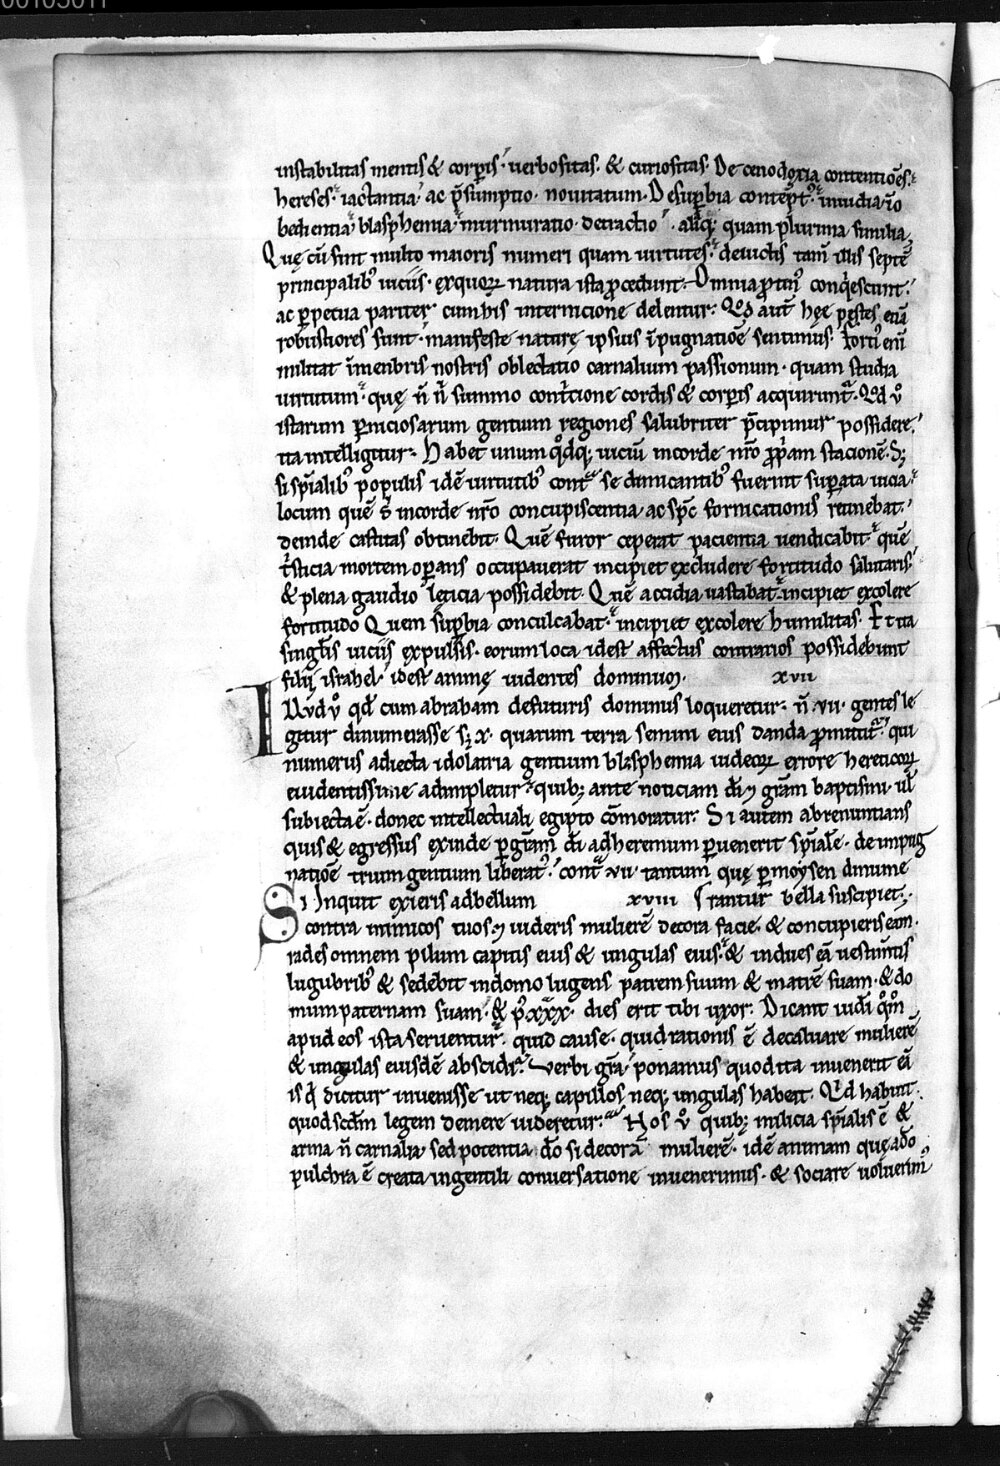 instabilitas mentis & corꝑis. uerbositas. & curiositas. De cenodoxia contentiões.
hereses. iactantia. ac p̄sumptio. nouitatum. De suꝑbia contēpt⁹. inuidia. īo
bedientia. blasphemia. murmuratio. detractio. aliaq; quam plurima similia.
Quę cū sint multo maioris numeri quam uirtutes. deuictis tam̄ illis septē
principalib⁹ uiciis. ex quoꝝ natura ista ꝓcedunt. Omnia ꝓtin⁹ conq̇escunt.
ac ꝑpetua pariter cum his internicione delentur. Qd̓ aut̄ hęe pęstes etiā
robustiores sunt. manifeste naturę ipsius īpugnatiōe sentimus. fortī enī
militat īmenbris nostris oblectatio carnalium passionum. quam studia
uirtutum. quę n̄ n̄ summo contͥcione cordis & corꝑis acquirunt̃. Qd v̊
istarum ꝑniciosarum gentium regiones salubriter p̄cipimur possidere.
ita intelligitur. Habet unum qͦdq; uiciū incorde nr̄o ꝓpͥam stacionē. S;
si sp̄ialib⁹ populis idē uirtutib⁹ contͣ se dimicantib⁹ fuerint suꝑata uicia.
locum quē s̄ incorde nr̄o concupiscentia. ac sp̄c fornicationis retinebat.
deinde castitas obtinebit. Quē furor ceperat paciencia uendicabit. quē
tͥsticia mortem oꝑans occupauerat incipiet excludere fortitudo salutaris.
& plena gaudio leticia possidebit. Quē accidia uastabat. incipiet excolere
fortitudo Quem suꝑbia conculcabat. incipiet excolere humilitas. Et ita
singl̄is uiciis expulsis. eorum loca idest affectus contrarios possidebunt
filii israhel. idest animę uidentes dominum. xvii
ILlvd v̊ qd̓ cum abraham defuturis dominus loqueretur. n̄ .vii. gentes le
gitur dinumerasse s; .x. quarum terra semini eius danda ꝓmittit̃. qui
numerus adiecta idolatria gentium blasphemia iudeoꝝ errore hereticoꝝ
euidentissime adimpletur. quib; ante noticiam dī & gr̄am baptismi. ul̄
subiecta ē. donec intellectuali egipto cōmoratur. Si autem abrenuntians
quis & egressus exinde ꝑ gr̄am dī ad heremum ꝑuenerit sp̄ialē. de inpug
natiōe trium gentium liberat⁹. contͣ .vii. tantum quę ꝑ moysen dinume
SI Inquit exieris adbellum xviii rantur bella suscipiet.
contra inimicos tuos & uideris mulierē decora facie. & concupieris eam.
rades omnem pilum capitis eius & ungulas eius. & indues eā uestimtis
lugubrib⁹ & sedebit indomo lugens patrem suum & matrē suam. & do
mum paternam suam. & p⁹ xxx. dies erit tibi uxor. Dicant iudi qͦm̄
apud eos ista seruentur. quid cause. quid rationis ē decaluare mulierē
& ungulas eiusdē abscidi. Verbi gͣa. ponamus quod ita inuenerit eā
is q̇ dicitur inuenisse ut neq; capillos neq; ungulas habeat. Qd habuit.
quod scd̄m legem demere uideretur. Hos v̊ quib; milicia sp̄ialis ē &
arma n̄ carnalia. sed potentia dō si decorā mulierē. idē animam quę a dō
pulchra ē creata ingentili conuersatione inuenerimus. & sociare uoluerim⁹